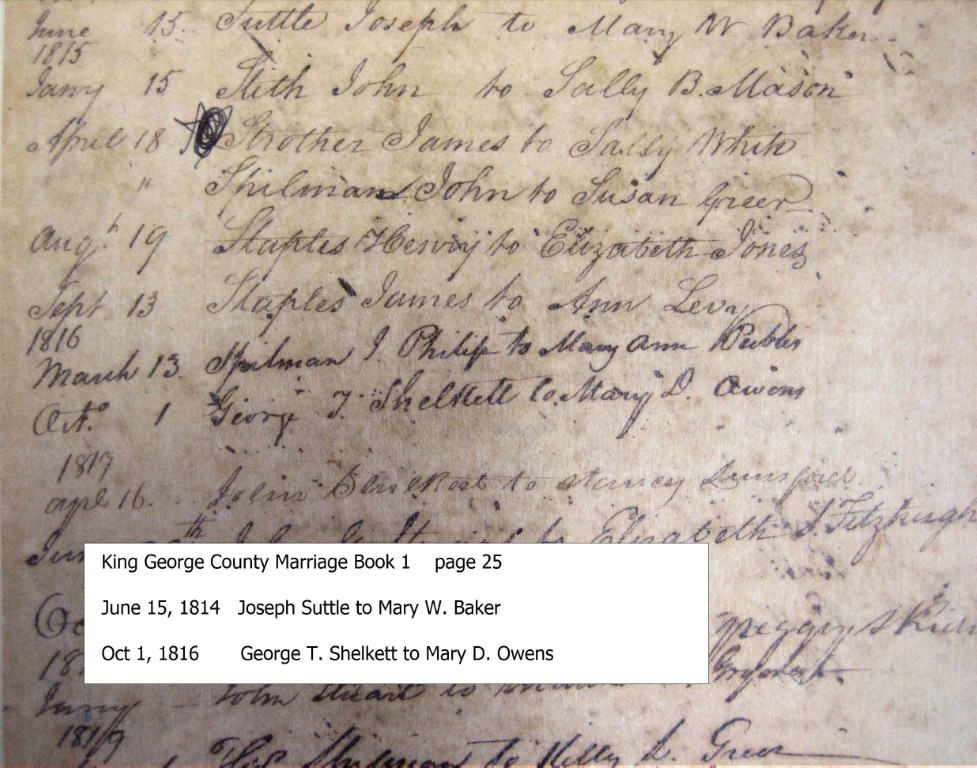 June 15. Suttle Joseph to Mary W Baker
1815
Jany 15 Stith John to Sally B. Mason
April 18 Strother James to Sally White
" Spilman John to Susan Greer
Augt 19 Staples Henry to Elizabeth Jones
Sept 13 Staples James to Ann Levy
1816
March 13. Spilman J. Philip to Mary Ann Peebles
Octo. 1 George T. Shelkett to Mary D. Owens
1817
apl 16. John to Lunsford
th John to Elizabeth Fitzhugh
King George County Marriage Book 1 page 25
June 15, 1814 Joseph Suttle to Mary W. Baker
Oct 1, 1816 George T. Shelkett to Mary D. Owens
John Stuart to
1819
Spilman to L. Greer